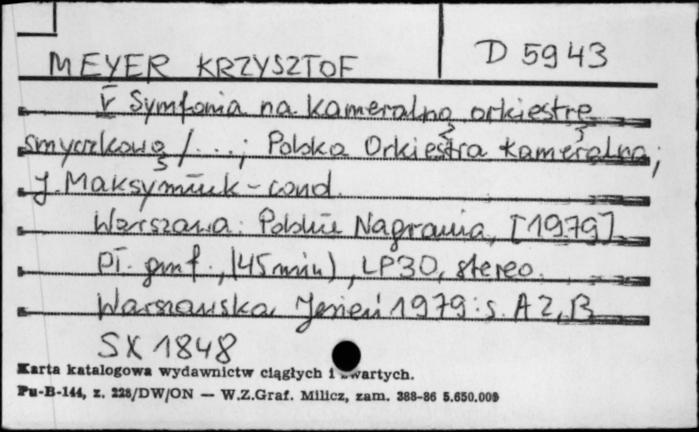 MEYER KRZYSZTOF D 5943
V Symfonia na kameralną orkiestrę
smyczkową / ...; Polska Orkiestra Kameralna;
J. Maksymiuk - cond.
Warszawa: Polskie Nagrania, [1979]
Pł. gmf., (45 min), LP30, stereo.
Warszawska Jesień 1979: s. A2, B
SX 1848
Karta katalogowa wydawnictw ciągłych i zwartych.
Pu-B-144, z. 228/DW/ON — W.Z.Graf. Milicz, zam. 388-86 5.650.000